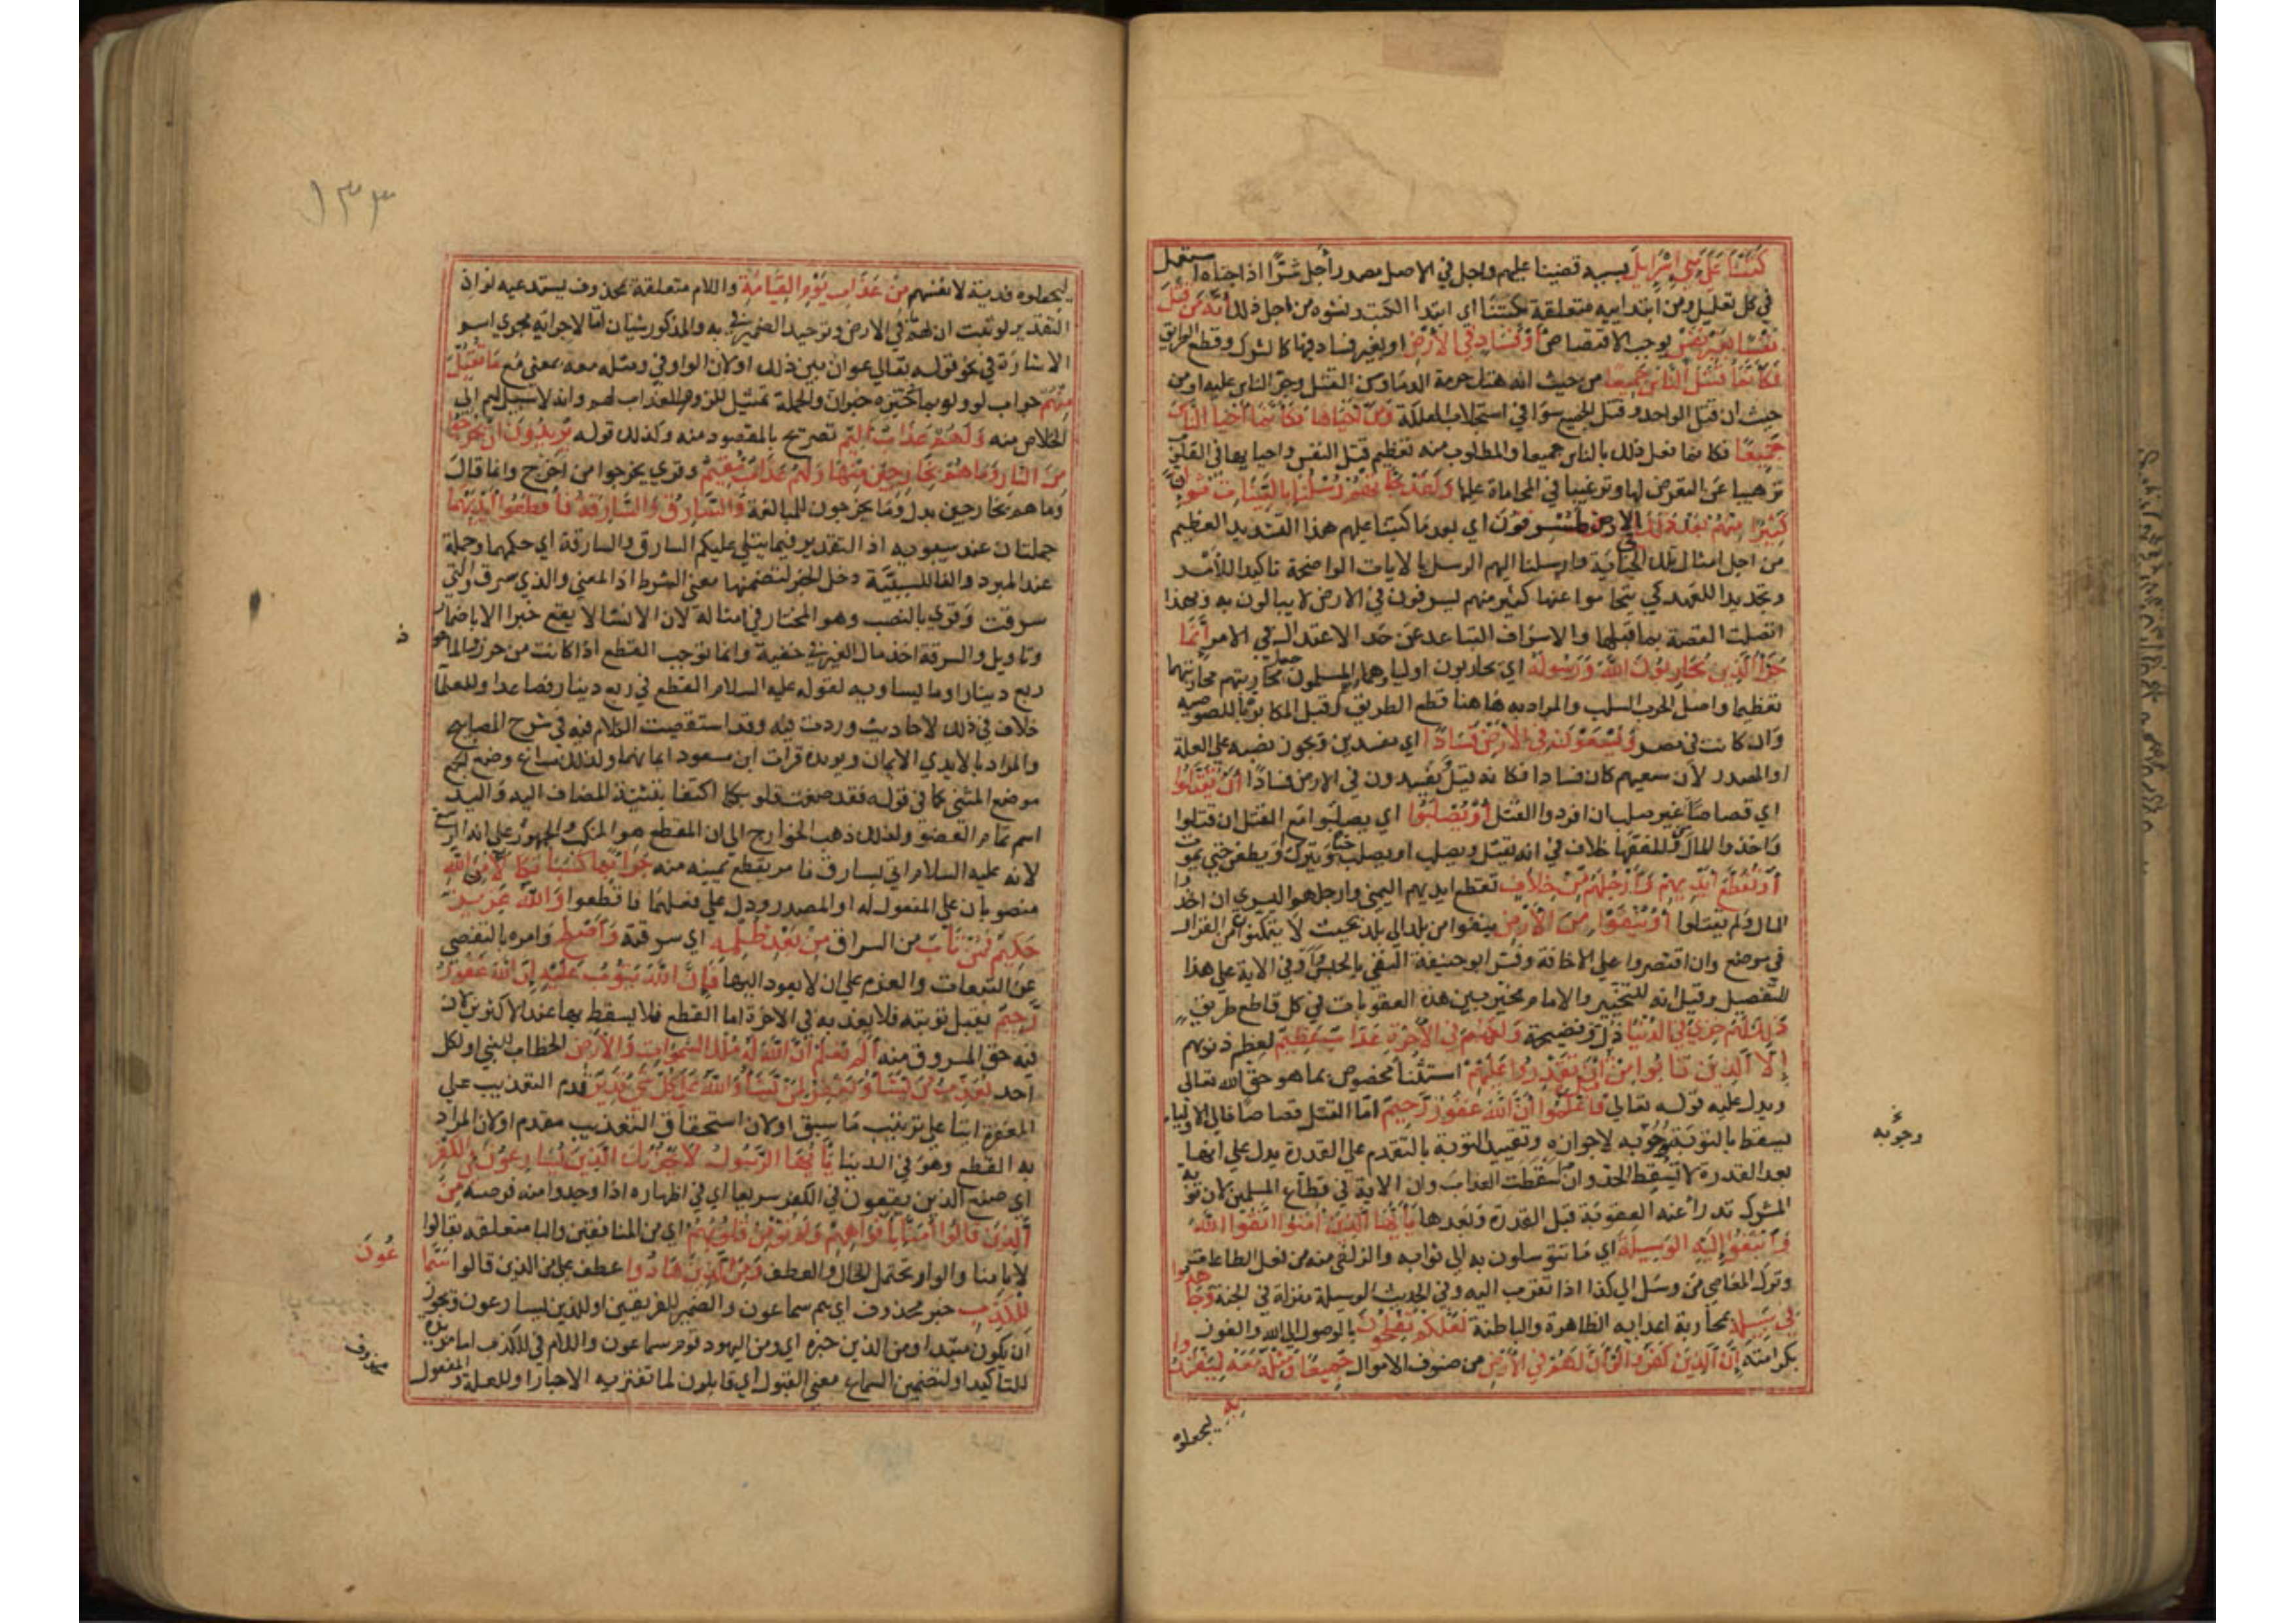 كَتَبْنَا عَلَى بَنِي إِسْرَائِيلَ بسببه قضينا عليهم واجل في الاصل مصدر أجل شرًّا اذا جناه استعمل
في كل تعليل ومن ابتدائيه متعلقة بكتبنا اى ابتدا الكتب ونشوه من اجل ذلك أَنَّهُ مَن قَتَلَ
نَفْسًا بِغَيْرِ نَفْسٍ يوجب الاقتصاص أَوْ فَسَادٍ فِي الْأَرْضِ او بغير فساد فيها كالشرك وقطع الطريق
فَكَأَنَّمَا قَتَلَ النَّاسَ جَمِيعًا من حيث انه هتك حرمة الدما وسن القتل وجرّ الناس عليه او من
حيث ان قتل الواحد وقتل الجميع سوا في استجلاب وَمَنْ أَحْيَاهَا فَكَأَنَّمَا أَحْيَا النَّاسَ
جَمِيعًا فكانما فعل ذلك بالناس جميعا والمطلوب منه تعظيم قتل النفس واحيايها في القلوب
ترهيبا عن التعرض لها وترغيبا في المحاماة عليها وَلَقَدْ جَاءَتْهُمْ رُسُلُنَا بِالْبَيِّنَاتِ ثُمَّ إِنَّ
كَثِيرًا مِنْهُمْ بَعْدَ ذَلِكَ في الارض لمسرفون اي بعد ما كتبنا عليهم هذا التشديد العظيم
من اجل امثال تلك الجناية وارسلنا اليهم الرسل بالايات الواضحة تاكيدا للأمر
وتجديدا للعهد كي يتحاموا عنها كثير منهم ليسرفون في الارض لا يبالون به وبهذا
اتصلت القصة بما قبلها والاسراف التباعد عن حد الاعتدال في الامر إِنَّمَا
جَزَاءُ الَّذِينَ يُحَارِبُونَ اللَّهَ وَرَسُولَهُ اي يحاربون اولياهما وهم المسلمون جعل محاربتهم محاربتهما
تعظيما واصل الحرب السلب والمراد به هاهنا قطع الطريق وقيل المكابرة باللصوصية
وان كانت في مصر وَيَسْعَوْنَ فِي الْأَرْضِ فَسَادًا اي مفسدين ويجوز نصبه على العلة
او المصدر لان سعيهم كان فسادا فكانه قيل يفسدون في الارض فسادًا أَنْ يُقَتَّلُوا
اي قصاصا من غير صلب ان افردوا القتل أَوْ يُصَلَّبُوا اي يصلبوا مع القتل ان قتلوا
واخذوا المال وللفقها خلاف في انه يقتل ويصلب او يصلب حيا ويترك او يطعن حتى يموت
أَوْ تُقَطَّعَ أَيْدِيهِمْ وَأَرْجُلُهُمْ مِنْ خِلَافٍ تقطع ايديهم اليمنى وارجلهم اليسري ان اخذوا
المال ولم يقتلوا أَوْ يُنْفَوْا مِنَ الْأَرْضِ ينفوا من بلد الي بلد بحيث لا يتمكنوا من القرار
في موضع وان اقتصروا علي الاخافة وفسر ابو حنيفة النفى بالحبس واو في الاية على هذا
للتفصيل وقيل انه للتخيير والامام مخير بين هذه العقوبات في كل قاطع طريق
ذَلِكَ لَهُمْ خِزْيٌ فِي الدُّنْيَا ذل وفضيحة وَلَهُمْ فِي الْآخِرَةِ عَذَابٌ عَظِيمٌ لعظم ذنوبهم
إِلَّا الَّذِينَ تَابُوا مِنْ قَبْلِ أَنْ تَقْدِرُوا عَلَيْهِمْ استثنا مخصوص بما هو حق الله تعالى
ويدل عليه قوله تعالي فَاعْلَمُوا أَنَّ اللَّهَ غَفُورٌ رَحِيمٌ امّا القتل قصاصا فالي الاولياء
يسقط بالتوبة وجوبه لا جوازه وتقييد التوبة بالتقدم علي القدرة يدل علي انها
بعد القدرة لا تسقط الحد وان اسقطت العذاب وان الاية في قطّاع المسلمين لان توبة
المشرك تدرأ عنه العقوبة قبل القدرة وبعدها يَا أَيُّهَا الَّذِينَ آمَنُوا اتَّقُوا اللَّهَ
وَابْتَغُوا إِلَيْهِ الْوَسِيلَةَ اي ما تتوسلون به الي ثوابه والزلفي منه من فعل الطاعات
وترك المعاصي من وسل الي كذا اذا تقرب اليه وفي الحديث الوسيلة منزلة في الجنة وَجَاهِدُوا
فِي سَبِيلِهِ بمحاربة اعدايه الظاهرة والباطنة لَعَلَّكُمْ تُفْلِحُونَ بالوصول الي الله والفوز
بكرامته إِنَّ الَّذِينَ كَفَرُوا لَوْ أَنَّ لَهُمْ مَا فِي الْأَرْضِ من صنوف الاموال جَمِيعًا وَمِثْلَهُ مَعَهُ لِيَفْتَدُوا
بِهِ ليجعلوه
وجوبه
١٣٣
ليجعلوه فدية لانفسهم مِنْ عَذَابِ يَوْمِ الْقِيَامَةِ واللام متعلقة بمحذوف يستدعيه لو اذ
التقدير لو ثبت ان لهم ما في الارض وتوحيد الضمير في به والمذكور شيان امّا لاجرائه مجري اسم
الاشارة في نحو قوله تعالي عوان بين ذلك او لان الواو في ومثله معه بمعني مع مَا تُقُبِّلَ
مِنْهُمْ جواب لو ولو بما في حيزه خبر ان والجملة تمثيل للزوم العذاب لهم وانه لا سبيل لهم الى
الخلاص منه وَلَهُمْ عَذَابٌ أَلِيمٌ تصريح بالمقصود منه وكذلك قوله يُرِيدُونَ أَنْ يَخْرُجُوا
مِنَ النَّارِ وَمَا هُمْ بِخَارِجِينَ مِنْهَا وَلَهُمْ عَذَابٌ مُقِيمٌ وقري يخرجوا من اخرج وانما قال
وما هم بخارجين بدل وما يخرجون للمبالغة وَالسَّارِقُ وَالسَّارِقَةُ فَاقْطَعُوا أَيْدِيَهُمَا
جملتان عند سيبويه اذ التقدير فيما يتلي عليكم السارق والسارقة اي حكمهما وجملة
عند المبرد والفا للسببيّة دخل الخبر لتضمنها معني الشرط اذ المعني والذي سرق والتي
سرقت وقري بالنصب وهو المختار في امثاله لان الانشا لا يقع خبرا الا باضمار
وتاويل والسرقة اخذ مال الغير في خفية وانما توجب القطع اذا كانت من حرز والماخوذ
ربع دينار او ما يساويه لقوله عليه السلام القطع في ربع دينار فصاعدا وللعلما
خلاف في ذلك لاحاديث وردت فيه وقد استقصيت الكلام فيه في شرح المصابيح
والمراد بالايدي الايمان ويويده قرات ابن مسعود ايمانهما ولذلك ساغ وضع الجمع
موضع المثنى كما في قوله فقد صغت قلوبكما اكتفا بتثنية المضاف اليه واليد
اسم تمام العضو ولذلك ذهب الخوارج الي ان المقطع هو المنكب والجمهور على انه الرسغ
لانه عليه السلام اتي بسارق فامر بقطع يمينه منه جَزَاءً بِمَا كَسَبَا نَكَالًا مِنَ اللَّهِ
منصوبان علي المفعول له او المصدر ودل علي فعلهما فاقطعوا وَاللَّهُ عَزِيزٌ
حَكِيمٌ فَمَنْ تَابَ من السراق مِنْ بَعْدِ ظُلْمِهِ اي سرقته وَأَصْلَحَ وامره بالتفصي
عن التبعات والعزم على ان لا يعود اليها فَإِنَّ اللَّهَ يَتُوبُ عَلَيْهِ إِنَّ اللَّهَ غَفُورٌ
رَحِيمٌ يقبل توبته فلا يعذبه في الاخرة اما القطع فلا يسقط بها عند الاكثرين لان
فيه حق المسروق منه أَلَمْ تَعْلَمْ أَنَّ اللَّهَ لَهُ مُلْكُ السَّمَوَاتِ وَالْأَرْضِ الخطاب للنبي او لكل
احد يُعَذِّبُ مَنْ يَشَاءُ وَيَغْفِرُ لِمَنْ يَشَاءُ وَاللَّهُ عَلَى كُلِّ شَيْءٍ قَدِيرٌ قدم التعذيب علي
المغفرة ايتا علي ترتيب ما سبق او لان استحقاق التعذيب مقدم او لان المراد
به القطع وهو في الدنيا يَا أَيُّهَا الرَّسُولُ لَا يَحْزُنْكَ الَّذِينَ يُسَارِعُونَ فِي الْكُفْرِ
اي صنع الذين يقعون في الكفر سريعا اي في اظهاره اذا وجدوا منه فرصه مِنَ
الَّذِينَ قَالُوا آمَنَّا بِأَفْوَاهِهِمْ وَلَمْ تُؤْمِنْ قُلُوبُهُمْ اي من المنافقين والبا متعلقه بقالوا
لا بامنا والواو تحتمل الحال والعطف وَمِنَ الَّذِينَ هَادُوا عطف على من الذين قالوا سَمَّا
عُونَ
لِلْكَذِبِ خبر محذوف اي هم سماعون والضمير للفريقين او للذين يسارعون ويجوز
ان يكون مبتدا ومن الذين خبره اي ومن اليهود قوم سماعون واللام في للكذب اما مزيدة
للتاكيد او لتضمين السماع معني القبول اي قابلون لما تفتريه الاحبار او للعلة والمفعول
محذوف